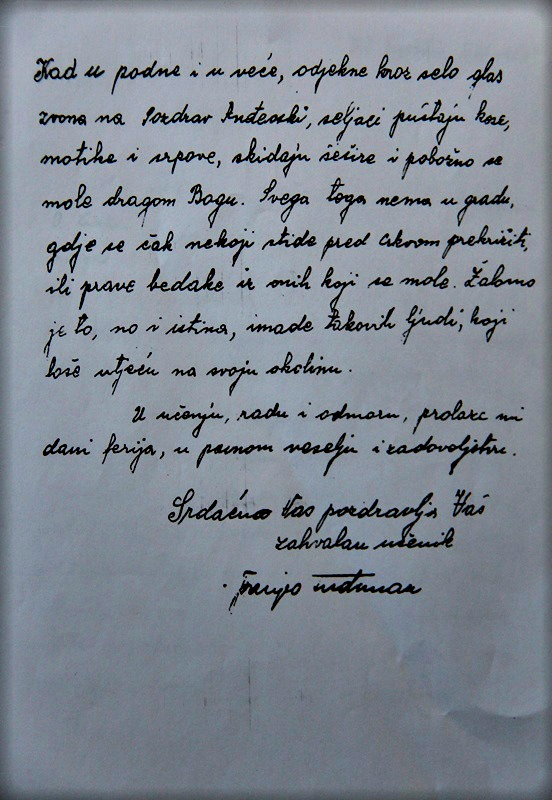 Kad u podne i u veće, odjekne kroz selo glas
zvona na Pozdrav Anđeoski, seljaci puštaju kose,
motike i srpove, skidaju šešire i pobožno se
mole dragom Bogu. Svega toga nema u gradu,
gdje se čak nekoji stide pred crkvom prekrižiti,
ili prave bedake iz onih koji se mole. Žalosno
je to, no i istina, imade takovih ljudi, koji
loše utječu na svoju okolinu.
U učenju, radu i odmoru, prolaze mi
dani ferija, u punom veselju i zadovoljstvu.
Srdačno Vas pozdravlja Vaš
zahvalan učenik
Franjo Tuđman